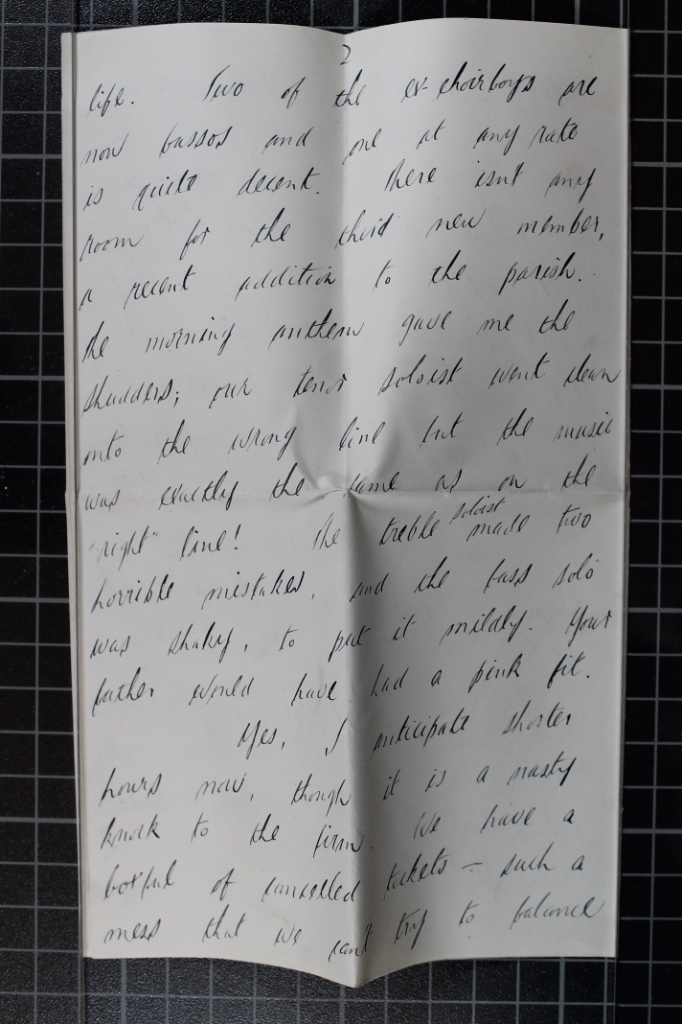 2
life. Two of the ex-choirboys are
now bassos and one at any rate
is quite decent. There isn't any
room for the third new member,
a recent addition to the parish.
The morning anthem gave me the
shudders; our tenor soloist went down
onto the wrong line but the music
was exactly the same as on the
"right" line! The treble soloist made two
horrible mistakes, and the bass solo
was shaky, to put it mildly. Your
father would have had a pink fit.
Yes, I anticipate shorter
hours now, though it is a nasty
knock to the firm. We have a
boxful of cancelled tickets – such a
mess that we can't try to balance